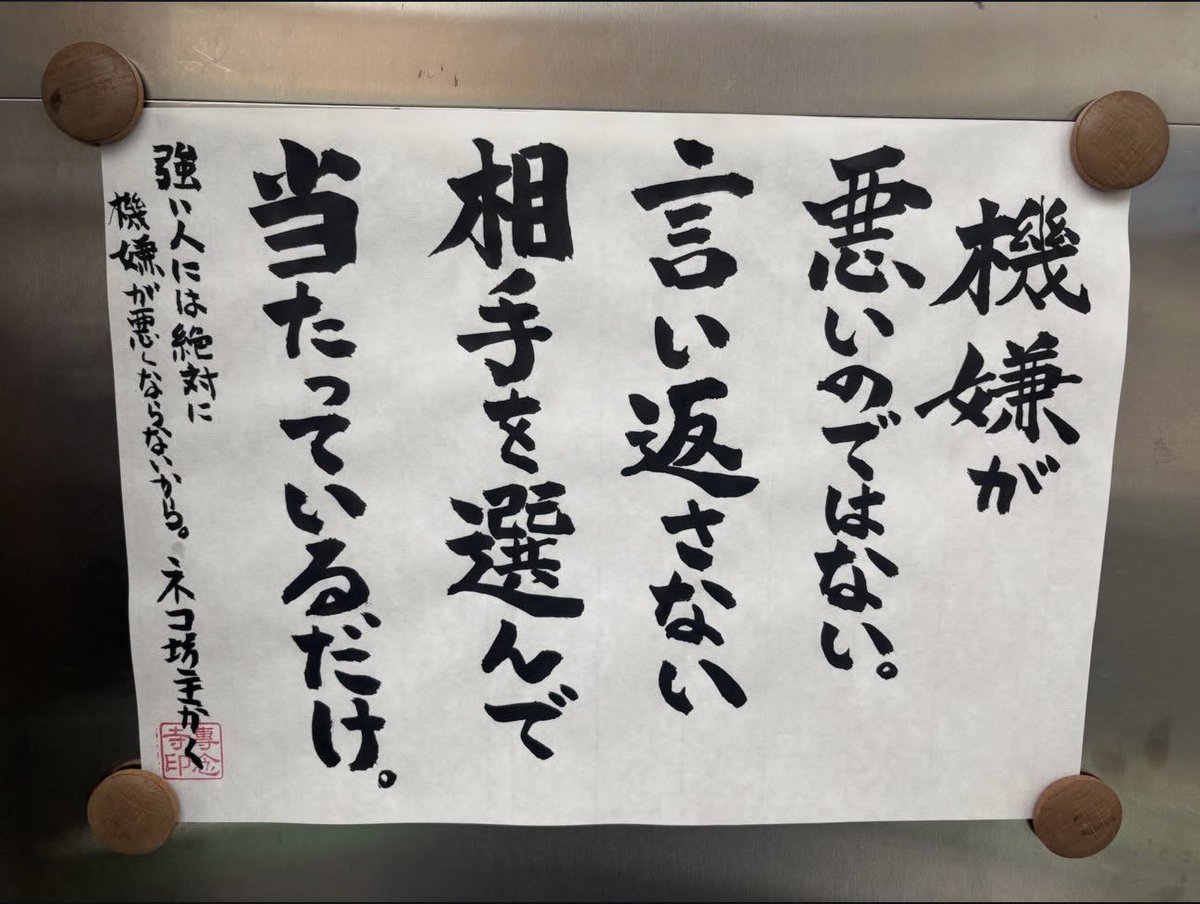 機嫌が
悪いのではない。
言い返さない
相手を選んで
当たっているだけ。
強い人には絶対に
機嫌が悪くならないから。 ネコ坊主かく
專念
寺印